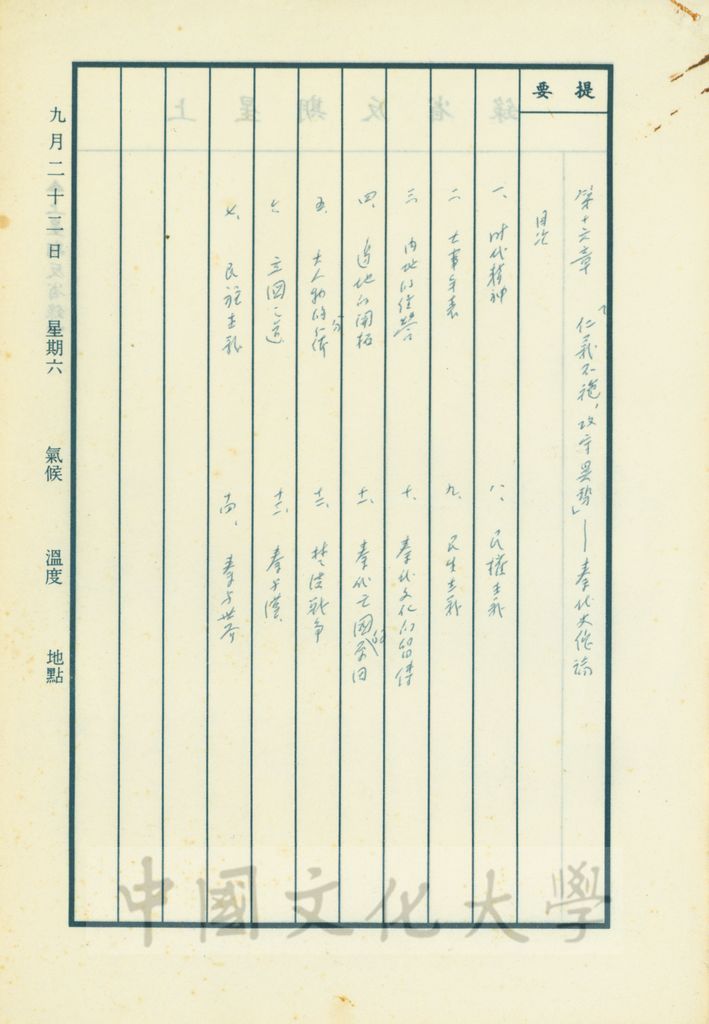 提要
第十六章 「仁義不施，攻守異勢」——秦代大
目次
一、時代精神
二、大事年表
三、內地的經營
四、邊地的開拓
五、大人物的分
六、立國之道
七、民族主義
八、民權主義
九、民生主義
十、秦代文化的留傳
十一、秦代亡國的原因
十二、楚漢戰爭
十三、秦與漢
十四、秦與世界
九月二十二日 星期六 氣候 溫度 地點
上星期反省錄
中國文化大學